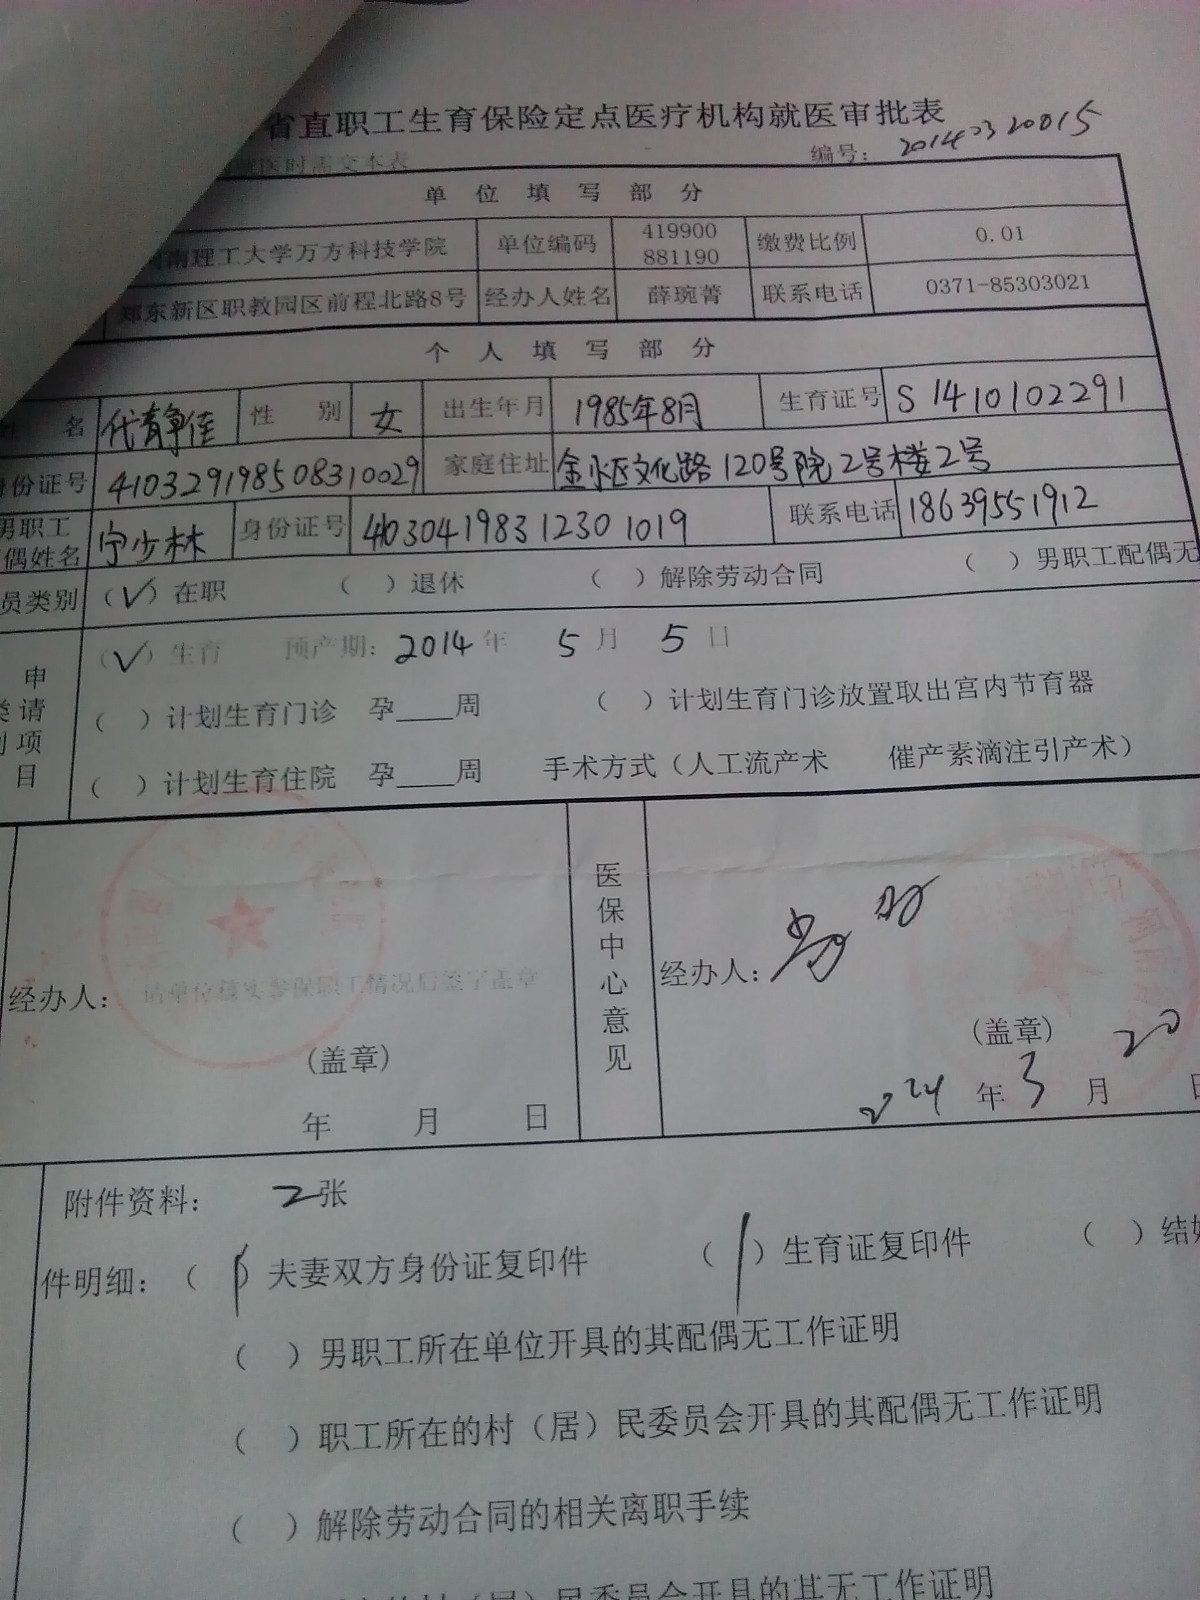 省直职工生育保险定点医疗机构就医审批表
就医时需交本表 编号: 20140320015
单位填写部分
河南理工大学万方科技学院 单位编码 419900 881190 缴费比例 0.01
郑东新区职教园区前程北路8号 经办人姓名 薛琬菁 联系电话 0371-85303021
个人填写部分
姓名 代静佳 性别 女 出生年月 1985年8月 生育证号 S1410102291
身份证号 410329198508310029 家庭住址 金水区文化路120号院2号楼2号
男职工
偶姓名 宁少林 身份证号 410304198312301019 联系电话 18639551912
员类别 (√) 在职 ( ) 退休 ( ) 解除劳动合同 ( ) 男职工配偶无
申请项目类别
(√) 生育 预产期: 2014年 5月 5日
( ) 计划生育门诊 孕____周 ( ) 计划生育门诊放置取出宫内节育器
( ) 计划生育住院 孕____周 手术方式(人工流产术 催产素滴注引产术)
医保中心意见
经办人: 请单位核实参保职工情况后签字盖章 经办人:
(盖章) (盖章)
年 月 日 2014年3月20日
附件资料: 2张
件明细: ( ) 夫妻双方身份证复印件 ( ) 生育证复印件 ( ) 结婚
( ) 男职工所在单位开具的其配偶无工作证明
( ) 职工所在的村(居)民委员会开具的其配偶无工作证明
( ) 解除劳动合同的相关离职手续
的村(居)民委员会开具的其无工作证明